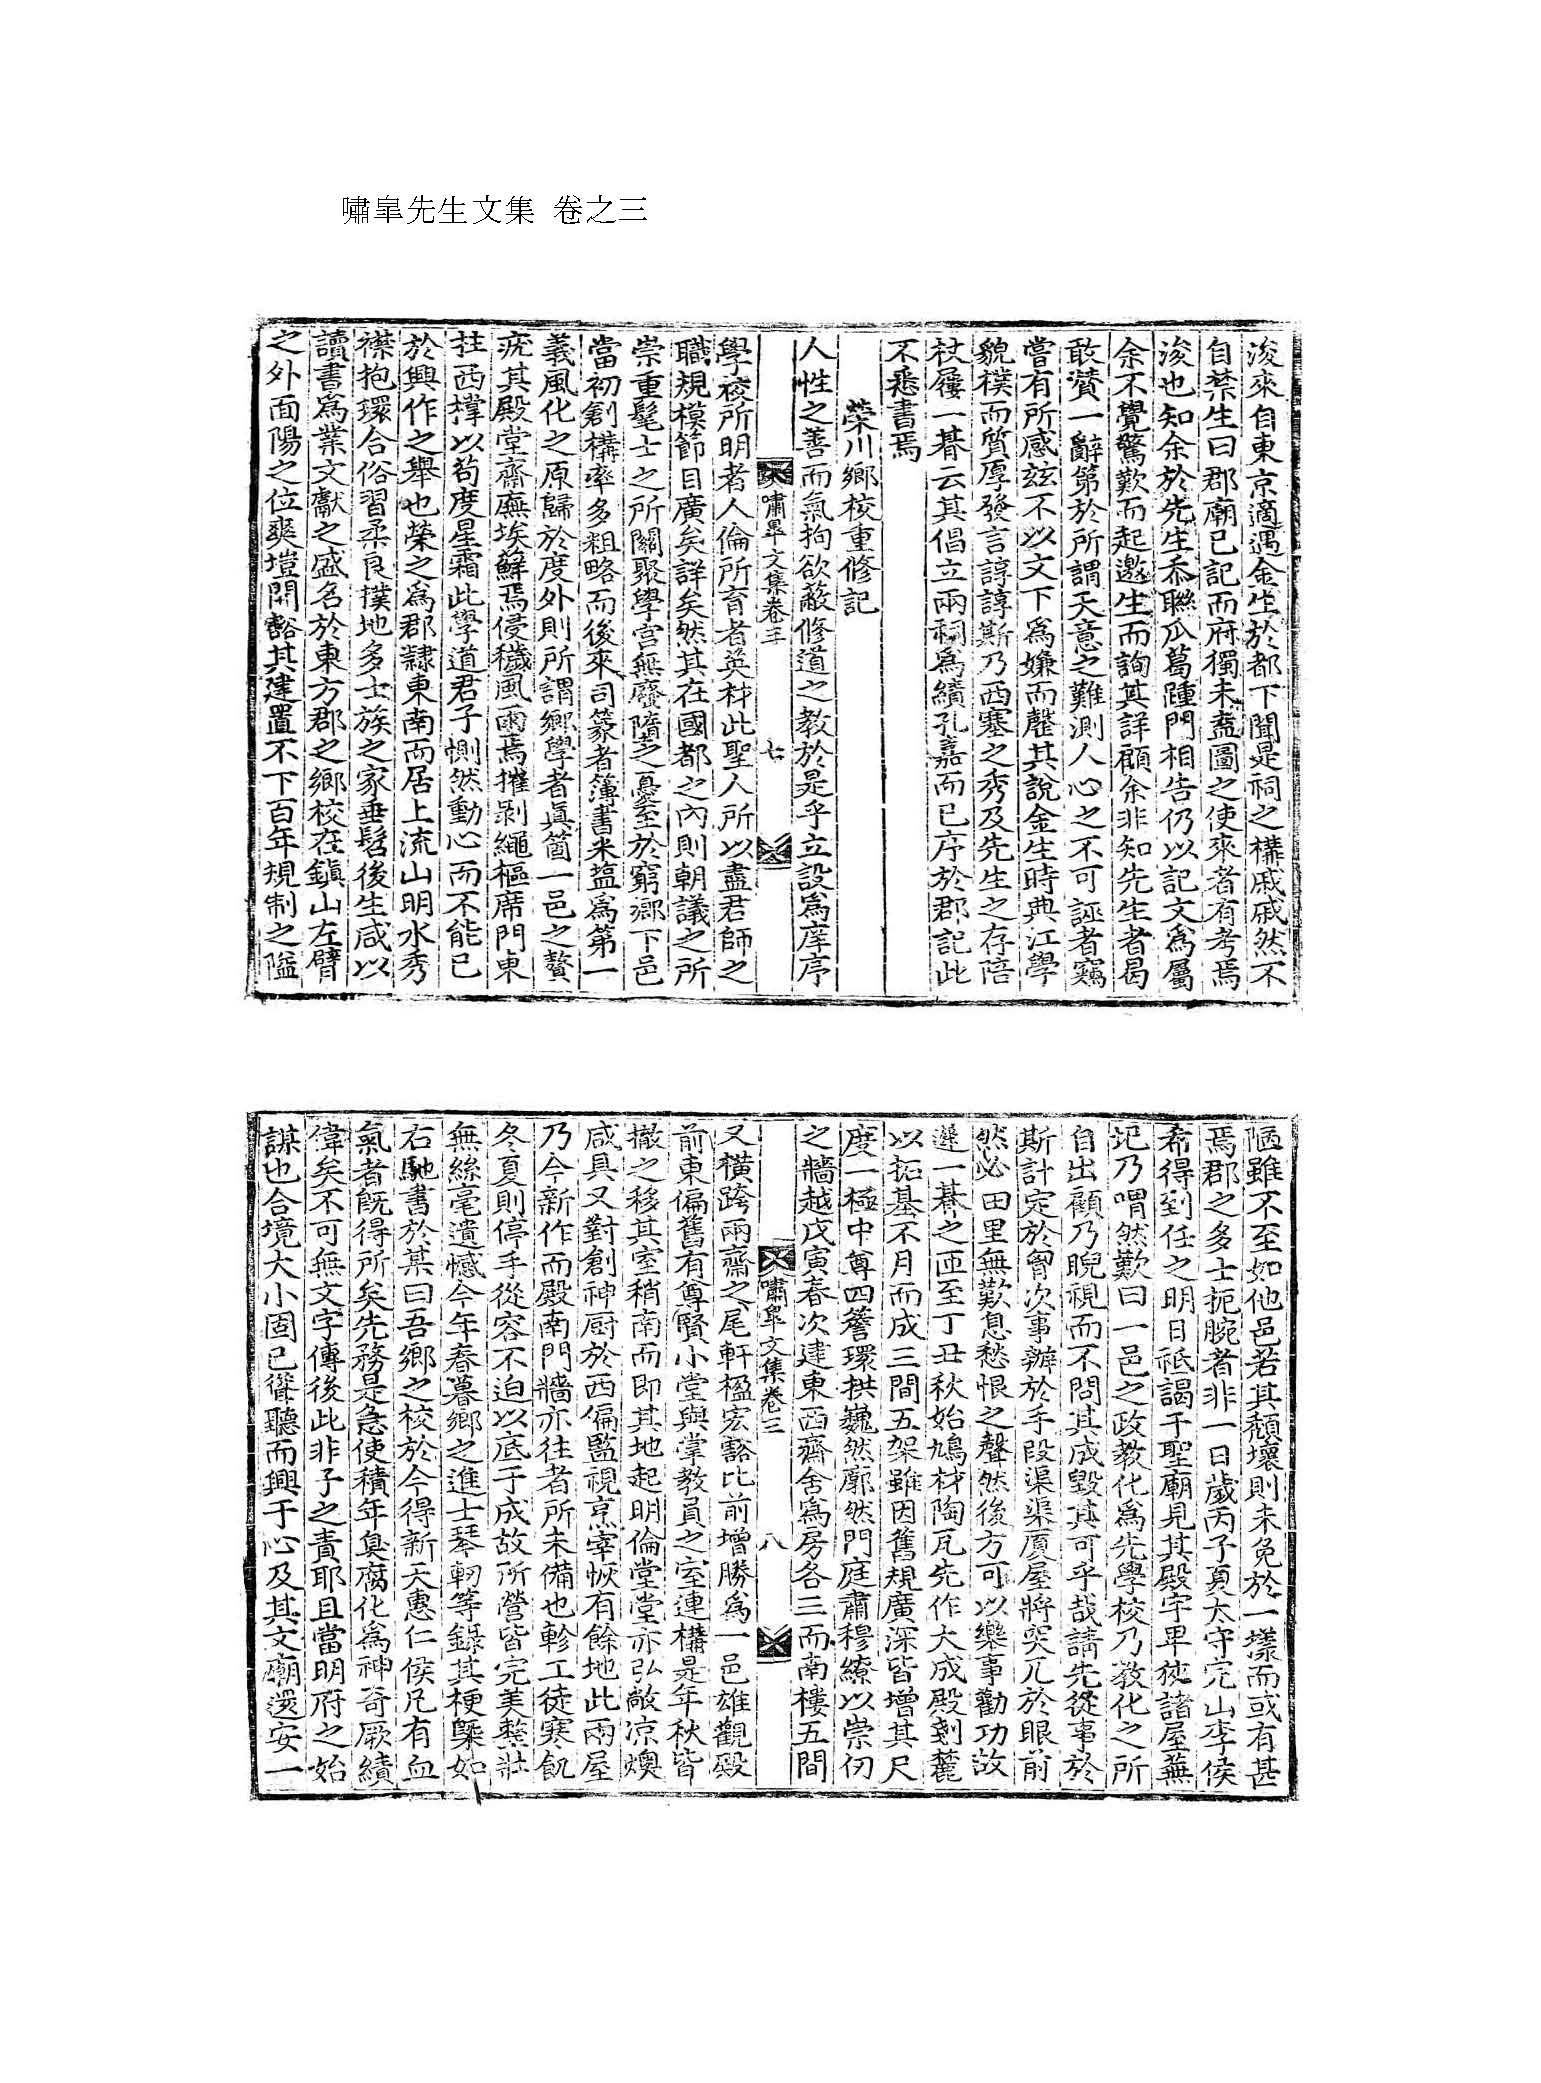 嘯皐先生文集 卷之三
浚來自東京適遇金生於都下聞是祠之構戚戚然不
自禁生曰郡廟已記而府獨未盍圖之使來者有考焉
浚也知余於先生忝聯瓜葛踵門相告仍以記文爲屬
余不覺驚歎而起邀生而詢其詳顧余非知先生者曷
敢贊一辭第於所謂天意之難測人心之不可誣者竊
嘗有所感玆不以文下爲嫌而罄其說金生時典江學
貌樸而質厚發言諄諄斯乃西塞之秀及先生之存陪
杖屨一朞云其倡立兩祠爲績孔嘉而已序於郡記此
不悉書焉
榮川鄕校重修記
人性之善而氣拘欲蔽修道之敎於是乎立設爲庠序
嘯皐文集卷三
七
學校所明者人倫所育者英材此聖人所以盡君師之
職規模節目廣矣詳矣然其在國都之內則朝議之所
崇重髦士之所關聚學宮無廢隳之憂至於窮鄕下邑
當初創構率多粗略而後來司篆者簿書米鹽爲第一
義風化之原歸於度外則所謂鄕學者眞箇一邑之贅
疣其殿堂齋廡埃蘚焉侵穢風雨焉摧剝繩樞席門東
拄西撑以苟度星霜此學道君子惻然動心而不能已
於興作之擧也榮之爲郡隷東南而居上流山明水秀
襟抱環合俗習柔良撲地多士族之家垂髫後生咸以
讀書爲業文獻之盛名於東方郡之鄕校在鎭山左臂
之外面陽之位爽塏開豁其建置不下百年規制之隘
陋雖不至如他邑若其頹壞則未免於一㨾而或有甚
焉郡之多士扼腕者非一日歲丙子夏太守完山李侯
希得到任之明日祗謁于聖廟見其殿宇卑狹諸屋蕪
圮乃喟然歎曰一邑之政敎化爲先學校乃敎化之所
自出顧乃睨視而不問其成毁其可乎哉請先從事於
斯計定於胷次事辦於手段渠渠厦屋將突兀於眼前
然必田里無歎息愁恨之聲然後方可以樂事勸功故
遲一朞之匝至丁丑秋始鳩材陶瓦先作大成殿剗麓
以拓基不月而成三間五架雖因舊規廣深皆增其尺
度一極中尊四簷環拱巍然廓然門庭肅穆繚以崇仞
之牆越戊寅春次建東西齋舍爲房各三而南樓五間
嘯皐文集卷三
八
又橫跨兩齋之尾軒楹宏豁比前增勝爲一邑雄觀殿
前東偏舊有尊賢小堂與掌敎員之室連構是年秋皆
撤之移其室稍南而卽其地起明倫堂堂亦弘敞凉燠
咸具又對創神厨於西偏監視烹宰恢有餘地此兩屋
乃今新作而殿南門牆亦往者所未備也軫工徒寒飢
冬夏則停手從容不迫以底于成故所營皆完美整壯
無絲毫遺憾今年春暮鄕之進士琴軔等錄其梗槩如
右馳書於某曰吾鄕之校於今得新大惠仁侯凡有血
氣者旣得所矣先務是急使積年臭腐化爲神奇厥績
偉矣不可無文字傳後此非子之責耶且當明府之始
謀也合境大小固已聳聽而興于心及其文廟還安一